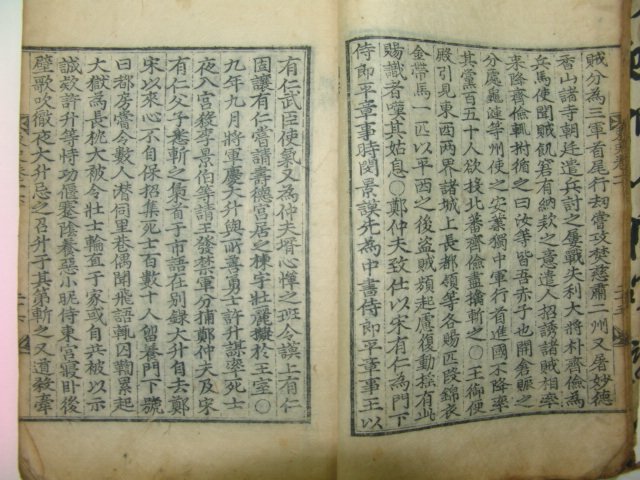 賊分為三軍首尾行刼嘗攻焚慈肅二州又屠妙德
香山諸寺朝廷遣兵討之屢戰失利大將朴齊儉為
兵馬使聞賊飢窘有納欵之意遣人招誘諸賊相率
来降齊儉輒拊循之曰汝等皆吾赤子也開倉賑之
分處龜漣等州使之安業獨中軍行首進國不降率
其黨百五十人欲投北蕃齊儉盡擒斬之〇王御便
殿引見東西两界諸城上長都領等各賜匹段錦衣
金帶馬一匹以平西之後盗賊頻起慮復動揺有此
賜識者嘆其姑息〇鄭仲夫致仕以宋有仁為門下
侍郎平章事時閔景謨先為中書侍郎平章事王以
有仁武臣使氣又為仲夫壻心憚之班令謨上有仁
固讓有仁嘗請壽德宮居之棟宇壯麗擬於王室〇
九年九月將軍慶大升與所善勇士許升謀率死士
夜入宮殺李景伯等請王發禁軍分捕鄭仲夫及宋
有仁父子悉斬之梟首于市語在别錄大升自去鄭
宋以来心不自保招集死士百數十人留養門下號
曰都房嘗令數人潜伺里巷偶聞飛語輒囚鞫累起
大獄為長枕大被令壯士輪直于家或自共被以示
誠欵許升等恃功偃蹇陰養惡小昵侍東宮寢卧後
壁歌吹徹夜大升忌之召升于其第斬之又道殺牽